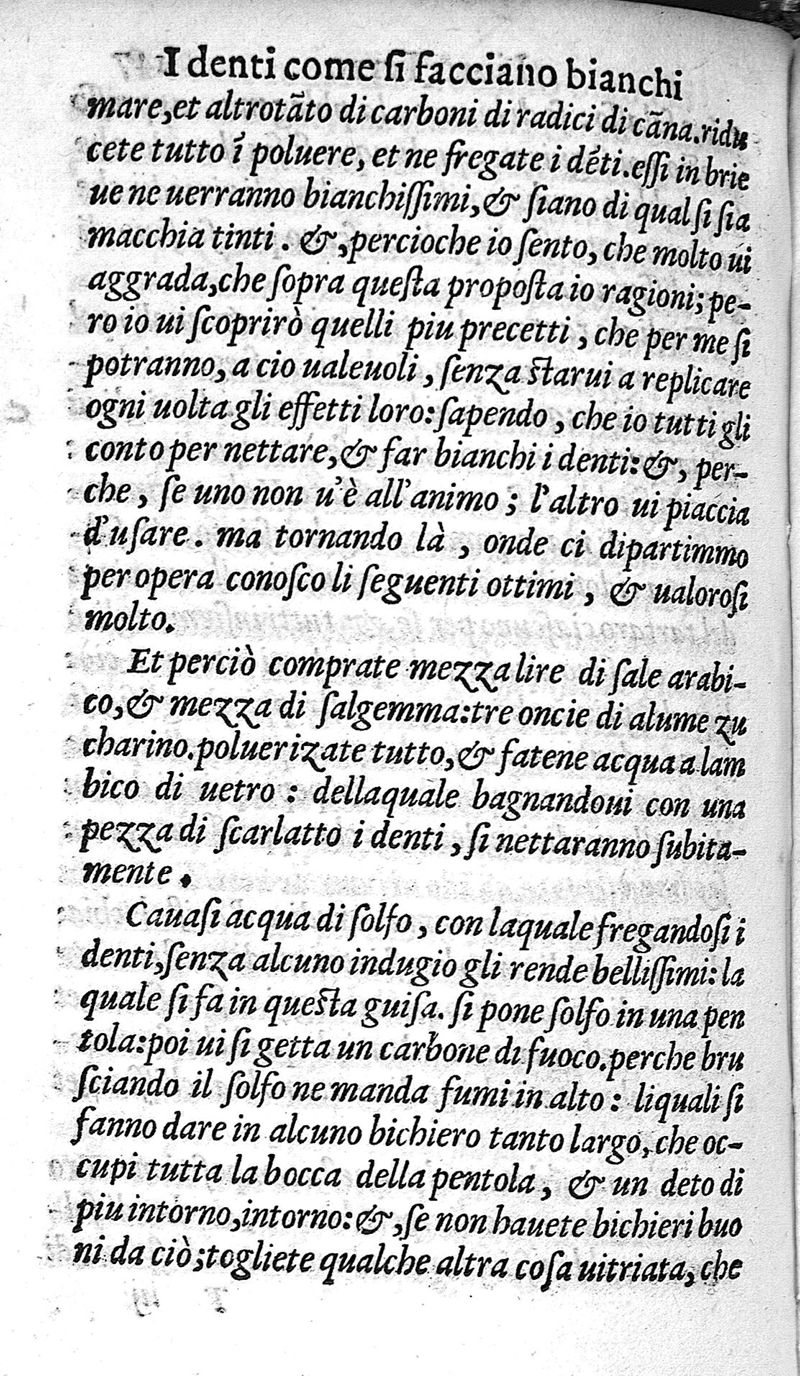 I denti come ſi facciano bianchi
mare, et altrotãto di carboni di radici di cãna. ridu
cete tutto ĩ poluere, et ne fregate i dẽti. eſſi in brie
ue ne uerranno bianchiſſimi, & ſiano di qual ſi ſia
macchia tinti. &, percioche io ſento, che molto ui
aggrada, che ſopra queſta propoſta io ragioni; pe-
ro io ui ſcoprirò quelli piu precetti, che per me ſi
potranno, a cio ualeuoli, ſenza ſtarui a replicare
ogni uolta gli effetti loro: ſapendo, che io tutti gli
conto per nettare, & far bianchi i denti: &, per-
che, ſe uno non u'è all'animo; l'altro ui piaccia
d'uſare. ma tornando là, onde ci dipartimmo
per opera conoſco li ſeguenti ottimi, & ualoroſi
molto.
Et perciò comprate mezza lire di ſale arabi-
co, & mezza di ſalgemma: tre oncie di alume zu
charino. poluerizate tutto, & fatene acqua a lam
bico di uetro: dellaquale bagnandoui con una
pezza di ſcarlatto i denti, ſi nettaranno ſubita-
mente.
Cauaſi acqua di ſolfo, con laquale fregandoſi i
denti, ſenza alcuno indugio gli rende belliſſimi: la
quale ſi fa in queſta guiſa. ſi pone ſolfo in una pen
tola: poi ui ſi getta un carbone di fuoco. perche bru
ſciando il ſolfo ne manda fumi in alto: liquali ſi
fanno dare in alcuno bichiero tanto largo, che oc-
cupi tutta la bocca della pentola, & un deto di
piu intorno, intorno: &, ſe non hauete bichieri buo
ni da ciò; togliete qualche altra coſa uitriata, che